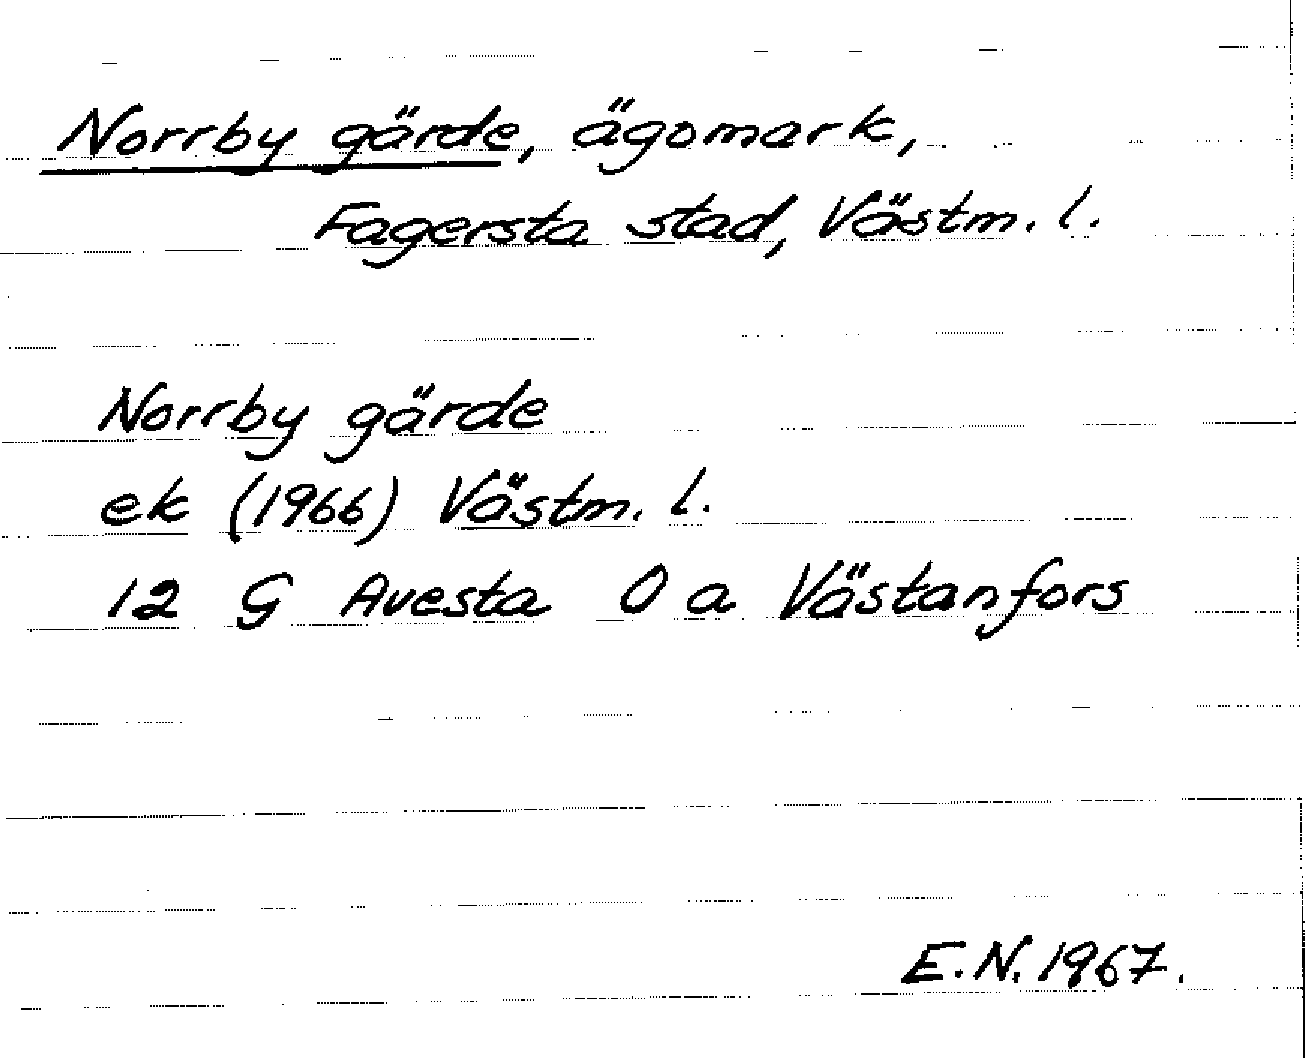 Norrby gärde, ägomark,
Fagersta stad, Västm. l.
Norrby gärde
ek (1966) Västm. l.
12 G Avesta 0 a Västanfors
E.N. 1967.